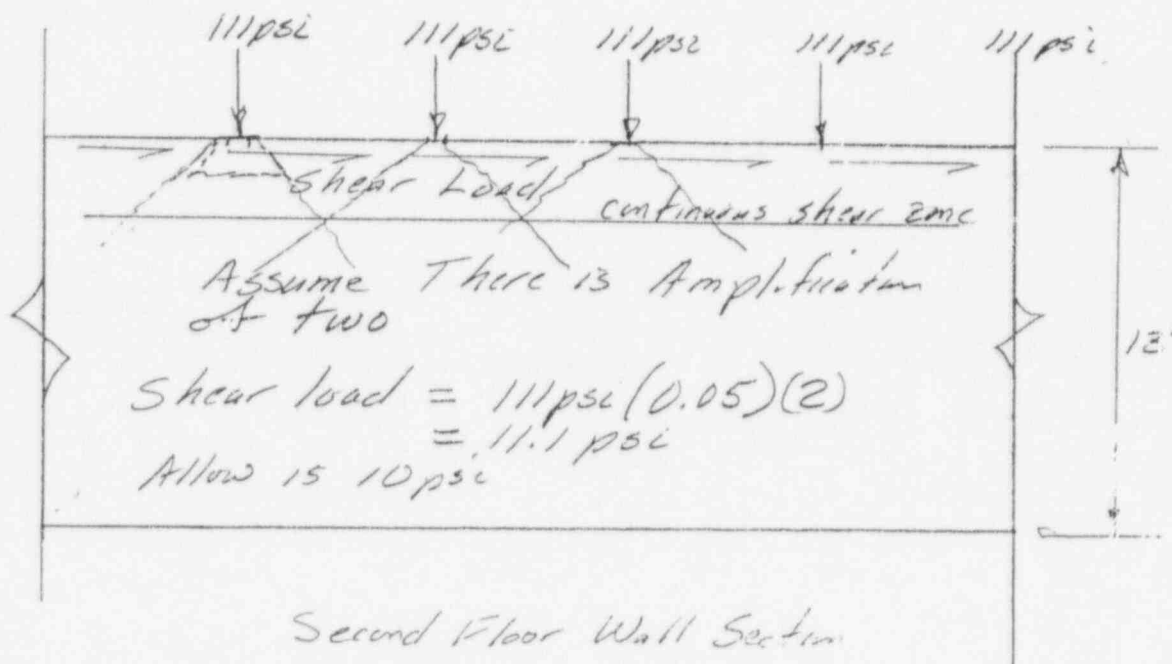 111psi 111psi 111psi 111psi 111psi
Shear Load
continuous shear zone
Assume There is Amplification
of two
Shear load = 111psi (0.05)(2)
= 11.1 psi
Allow is 10psi
Second Floor Wall Section